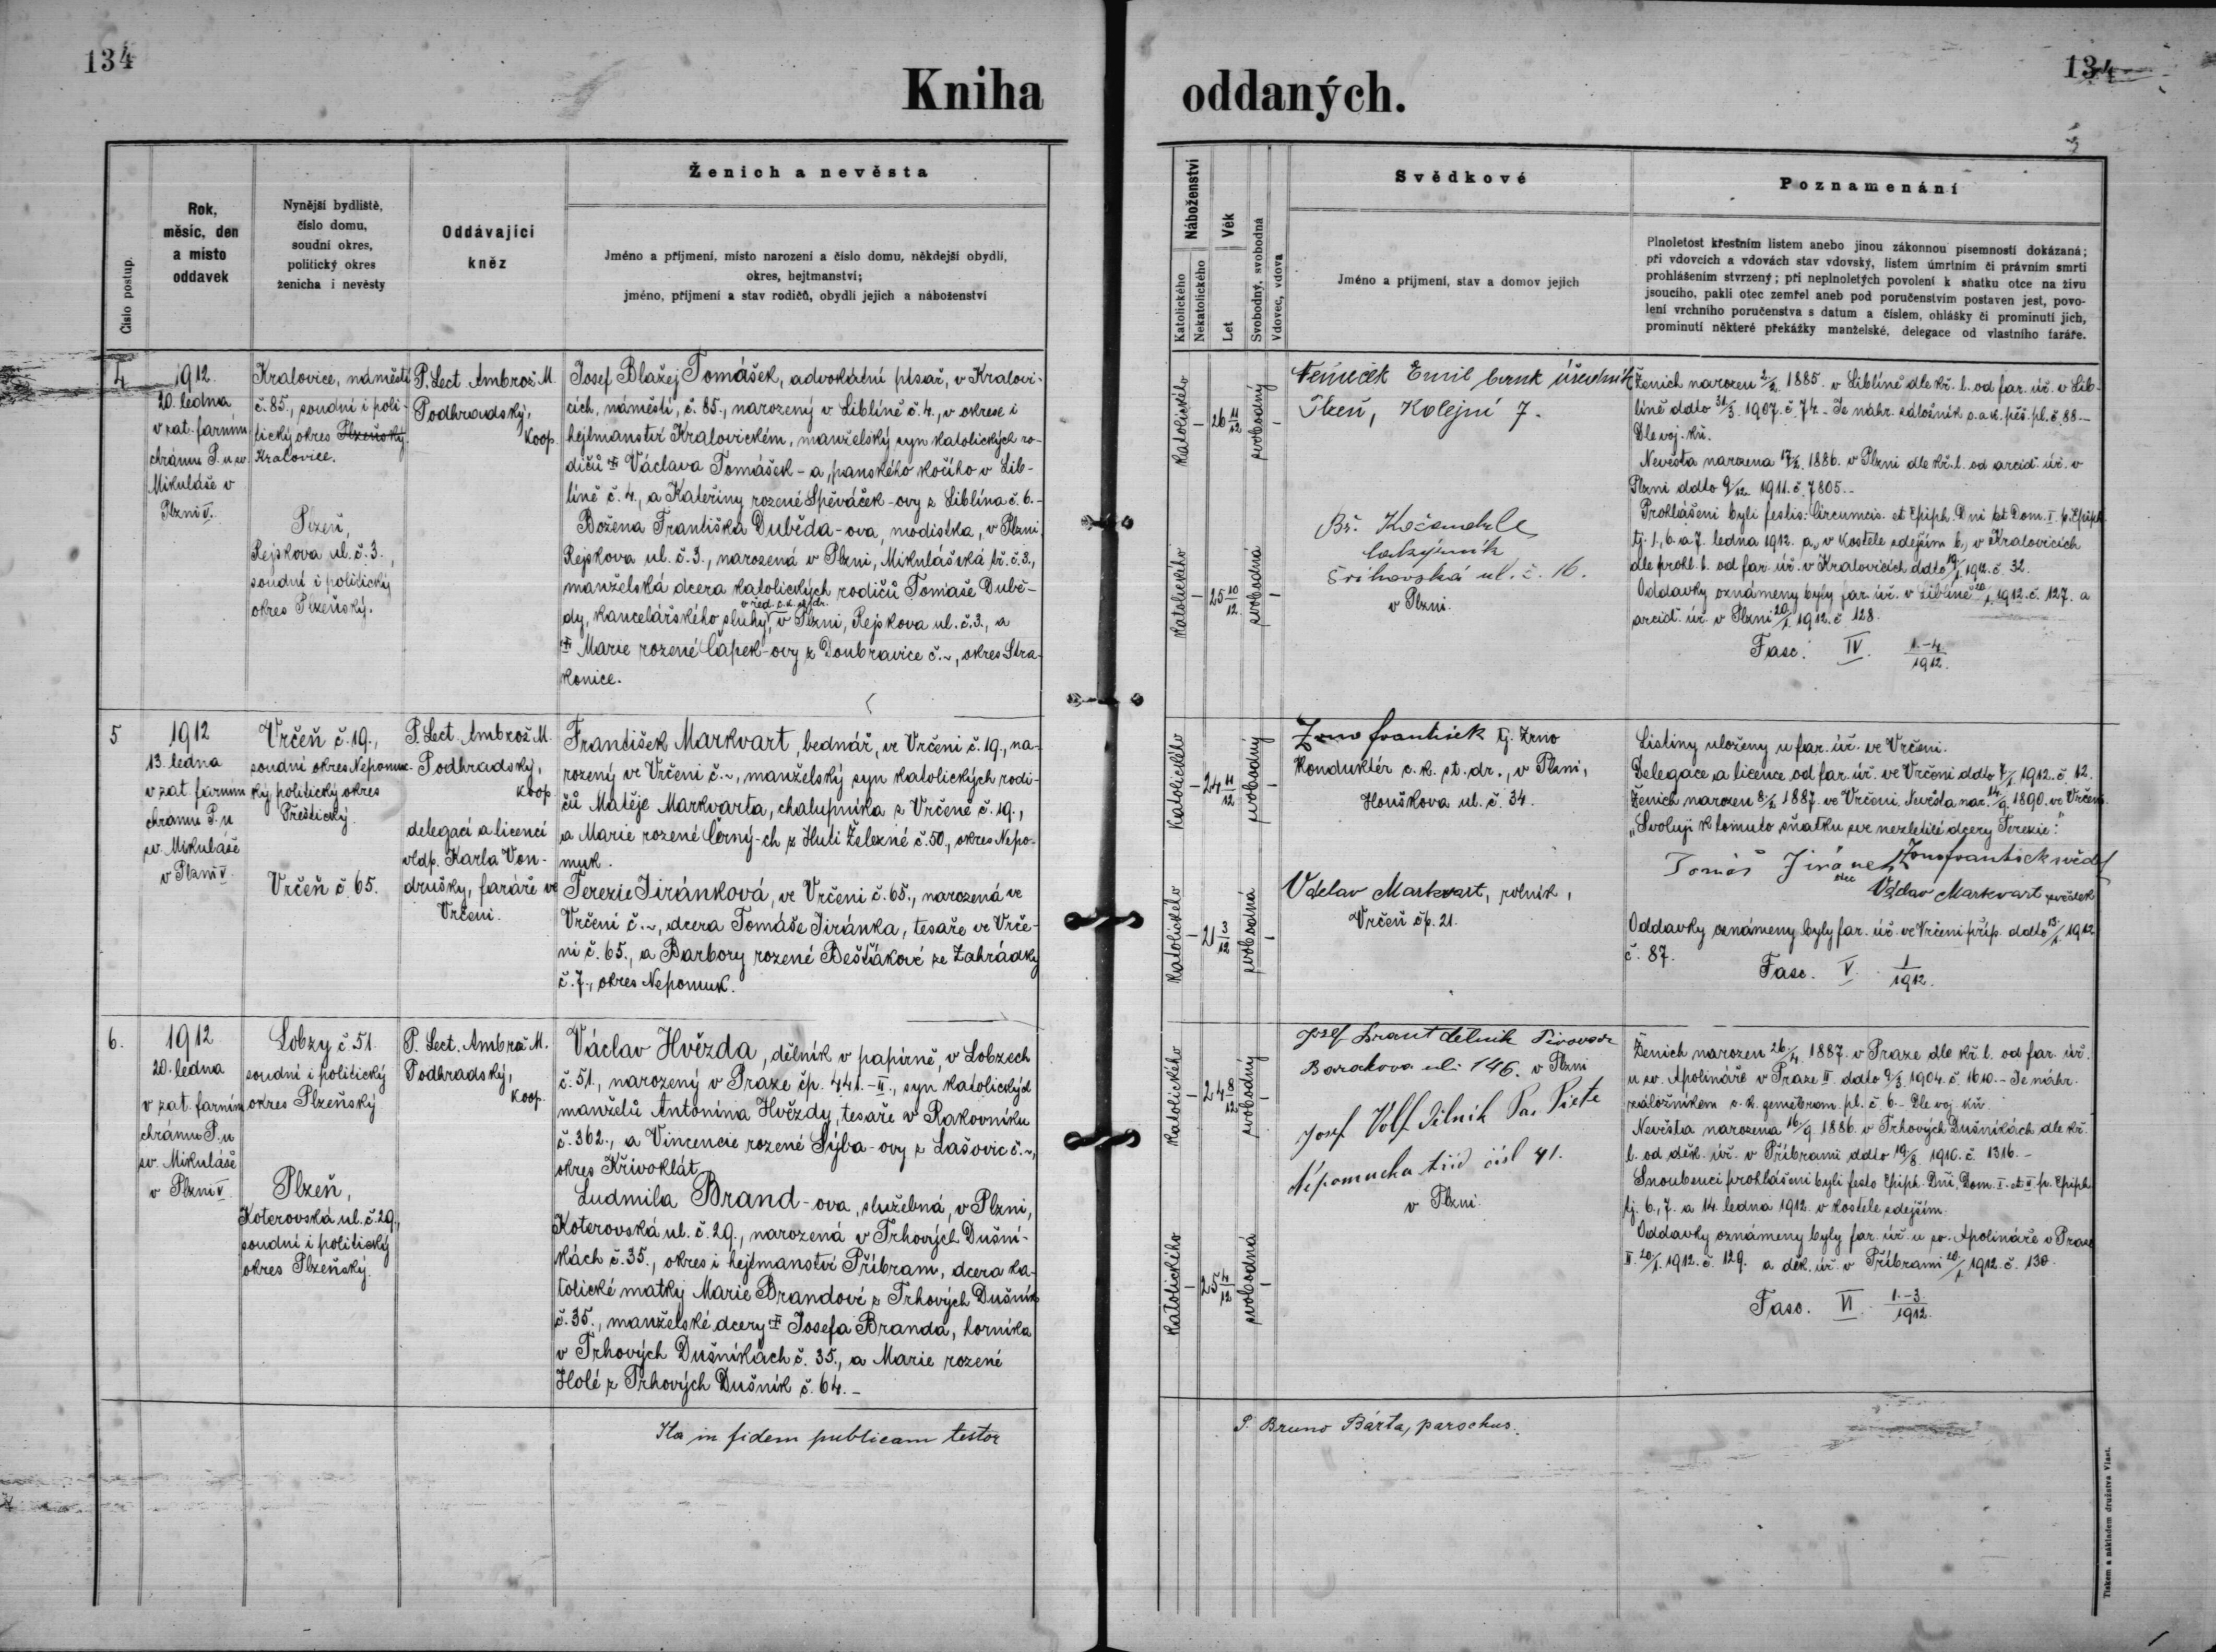 134
134
Kniha oddaných.
Číslo postup.
Rok,
měsíc, den
a místo
oddavek
Nynější bydliště,
číslo domu,
soudní okres,
politický okres
ženicha i nevěsty
Oddávající
kněz
Ženich a nevěsta
Jméno a příjmení, místo narození a číslo domu, někdejší obydlí,
okres, hejtmanství;
jméno, příjmení a stav rodičů, obydlí jejich a náboženství
Náboženství
Katolického
Nekatolického
Věk
Let
Svobodný, svobodná
Vdovec, vdova
Svědkové
Jméno a příjmení, stav a domov jejich
Poznamenání
Plnoletost křestním listem anebo jinou zákonnou písemností dokázaná;
při vdovcích a vdovách stav vdovský, listem úmrtním či právním smrti
prohlášením stvrzený; při neplnoletých povolení k sňatku otce na živu
jsoucího, pakli otec zemřel aneb pod poručenstvím postaven jest, povo-
lení vrchního poručenstva s datum a číslem, ohlášky či prominutí jich,
prominutí některé překážky manželské, delegace od vlastního faráře.
4
1912.
20. ledna
v zat. farním
chrámu P. u sv.
Mikuláše v
Plzni V.
Kralovice, náměstí
č. 85., soudní i poli-
tický okres Plzeňský
Kralovice.
Plzeň,
Rejskova ul. č. 3.,
soudní i politický
okres Plzeňský.
P. Lect. Ambrož M.
Podhradský,
koop.
Josef Blažej Tomášek, advokátní písař, v Kralovi-
cích, náměstí, č. 85., narozený v Liblíně č. 4., v okrese i
hejtmanství Kralovickém, manželský syn katolických ro-
dičů † Václava Tomášek-a, panského kočího v Lib-
líně č. 4., a Kateřiny rozené Spěváček-ovy z Liblína č. 6.-
Božena Františka Duběda-ova, modistka, v Plzni,
Rejskova ul. č. 3., narozená v Plzni, Mikulášská tř. č. 3.,
manželská dcera katolických rodičů Tomáše Dubě-
dy, kancelářského sluhy v Plzni, Rejskova ul. č. 3., a
† Marie rozené Čapek-ovy z Doubravice č. ~, okres Stra-
konice.
Katolického
–
26 11/12
svobodný
–
Katolického
–
25 10/12
svobodná
–
Němeček Emil bank úředník
Plzeň, Kolejní 7.
Bř. Kočandrle
v Plzni.
Ženich narozen 2/2. 1885. v Liblíně dle kř. l. od far. úř. v Lib-
líně ddto 31/3. 1907. č. 74.- Je náhr. záložník c. a k. pěš. pl. č. 88.-
Dle voj. kn.
Nevěsta narozena 17/2. 1886. v Plzni dle kř. l. od arcid. úř. v
Plzni ddto 9/12. 1911. č. 7805.-
Prohlášeni byli festis: Circumcis. et Epiph. Dni et Dom. I. p. Epiph.
tj. 1., 6. a 7. ledna 1912. a., v kostele zdejším b., v Kralovicích
dle prohl. l. od far. úř. v Kralovicích ddto 19/1. 1912. č. 32.
Oddavky oznámeny byly far. úř. v Liblíně 20/1. 1912. č. 127. a
arcid. úř. v Plzni 20/1. 1912. č. 128.
Fasc. IV. 1.-4/1912.
5
1912
13. ledna
v zat. farním
chrámu P. u
sv. Mikuláše
v Plzni V
Vrčeň č. 19.,
soudní okres Nepomuc-
ký, politický okres
Přeštický.
Vrčeň č. 65.
P. Lect. Ambrož M.
Podhradský,
koop.
delegací a licencí
vldp. Karla Von-
drušky, faráře ve
Vrčeni.
František Markvart, bednář, ve Vrčeni č. 19., na-
rozený ve Vrčeni č. ~, manželský syn katolických rodi-
čů Matěje Markvarta, chalupníka z Vrčeně č. 19.,
a Marie rozené Černý-ch z Huti Železné č. 50., okres Nepo-
muk.
Terezie Jiránková, ve Vrčeni č. 65., narozená ve
Vrčeni č. ~, dcera Tomáše Jiránka, tesaře ve Vrče-
ni č. 65., a Barbory rozené Bešťákové ze Zahrádky
č. 7., okres Nepomuk.
Katolického
–
24 11/12
svobodný
–
Katolického
–
21 3/12
svobodná
–
Zrno František tj. Zrno
konduktér c. k. st. dr., v Plzni,
Houškova ul. č. 34.
Václav Markvart, rolník,
Vrčeň čp. 21.
Listiny uloženy u far. úř. ve Vrčeni.
Delegace a licence od far. úř. ve Vrčeni ddto 7/1. 1912. č. 12.
Ženich narozen 8/2 1887. ve Vrčeni. Nevěsta nar. 14/9. 1890. ve Vrčeni.
„Svoluji k tomuto sňatku své nezletilé dcery Terezie:"
Tomáš Jiránek
otec
Zrno František svědek
Václav Markvart svědek
Oddavky oznámeny byly far. úř. ve Vrčeni příp. ddto 13/1. 1912
č. 87.
Fasc. V. 1/1912.
6.
1912
20. ledna
v zat. farním
chrámu P. u
sv. Mikuláše
v Plzni V
Lobzy č. 51.
soudní i politický
okres Plzeňský
Plzeň,
Koterovská ul. č. 29.,
soudní i politický
okres Plzeňský.
P. Lect. Ambrož M.
Podhradský,
koop.
Václav Hvězda, dělník v papírně, v Lobzech
č. 51., narozený v Praze čp. 441.-II., syn katolických
manželů Antonína Hvězdy, tesaře v Rakovníku
č. 362., a Vincencie rozené Sýba-ovy z Lašovic č. ~,
okres Křivoklát.
Ludmila Brand-ova, služebná, v Plzni,
Koterovská ul. č. 29., narozená v Trhových Dušní-
kách č. 35., okres i hejtmanství Příbram, dcera ka-
tolické matky Marie Brandové z Trhových Dušník
č. 35., manželské dcery † Josefa Branda, horníka
v Trhových Dušníkách č. 35., a Marie rozené
Holé z Trhových Dušník č. 64.-
Katolického
–
24 8/12
svobodný
–
Katolického
–
25 4/12
svobodná
–
Josef Brant dělník Pivovar
Barakova uli 146. v Plzni
Josef Volf dělník
Nepomucka tříd čísl 41.
v Plzni.
Ženich narozen 26/4. 1887. v Praze dle kř. l. od far. úř.
u sv. Apolináře v Praze II. ddto 9/3. 1904. č. 1610.- Je náhr.
záložníkem c. k. zeměbran. pl. č. 6.- Dle voj. kn.
Nevěsta narozena 16/9. 1886. v Trhových Dušníkách dle kř.
l. od děk. úř. v Příbrami ddto 19/8. 1910. č. 1316.-
Snoubenci prohlášeni byli festo Epiph. Dni, Dom. I. et II. p. Epiph.
tj. 6., 7. a 14. ledna 1912. v kostele zdejším.
Oddavky oznámeny byly far. úř. u sv. Apolináře v Praze
II. 20/1. 1912. č. 129. a děk. úř. v Příbrami 20/1. 1912. č. 130.
Fasc. VI 1.-3./1912.
Ita in fidem publicam testor
P. Bruno Bárta, parochus.
Tiskem a nákladem družstva Vlast.